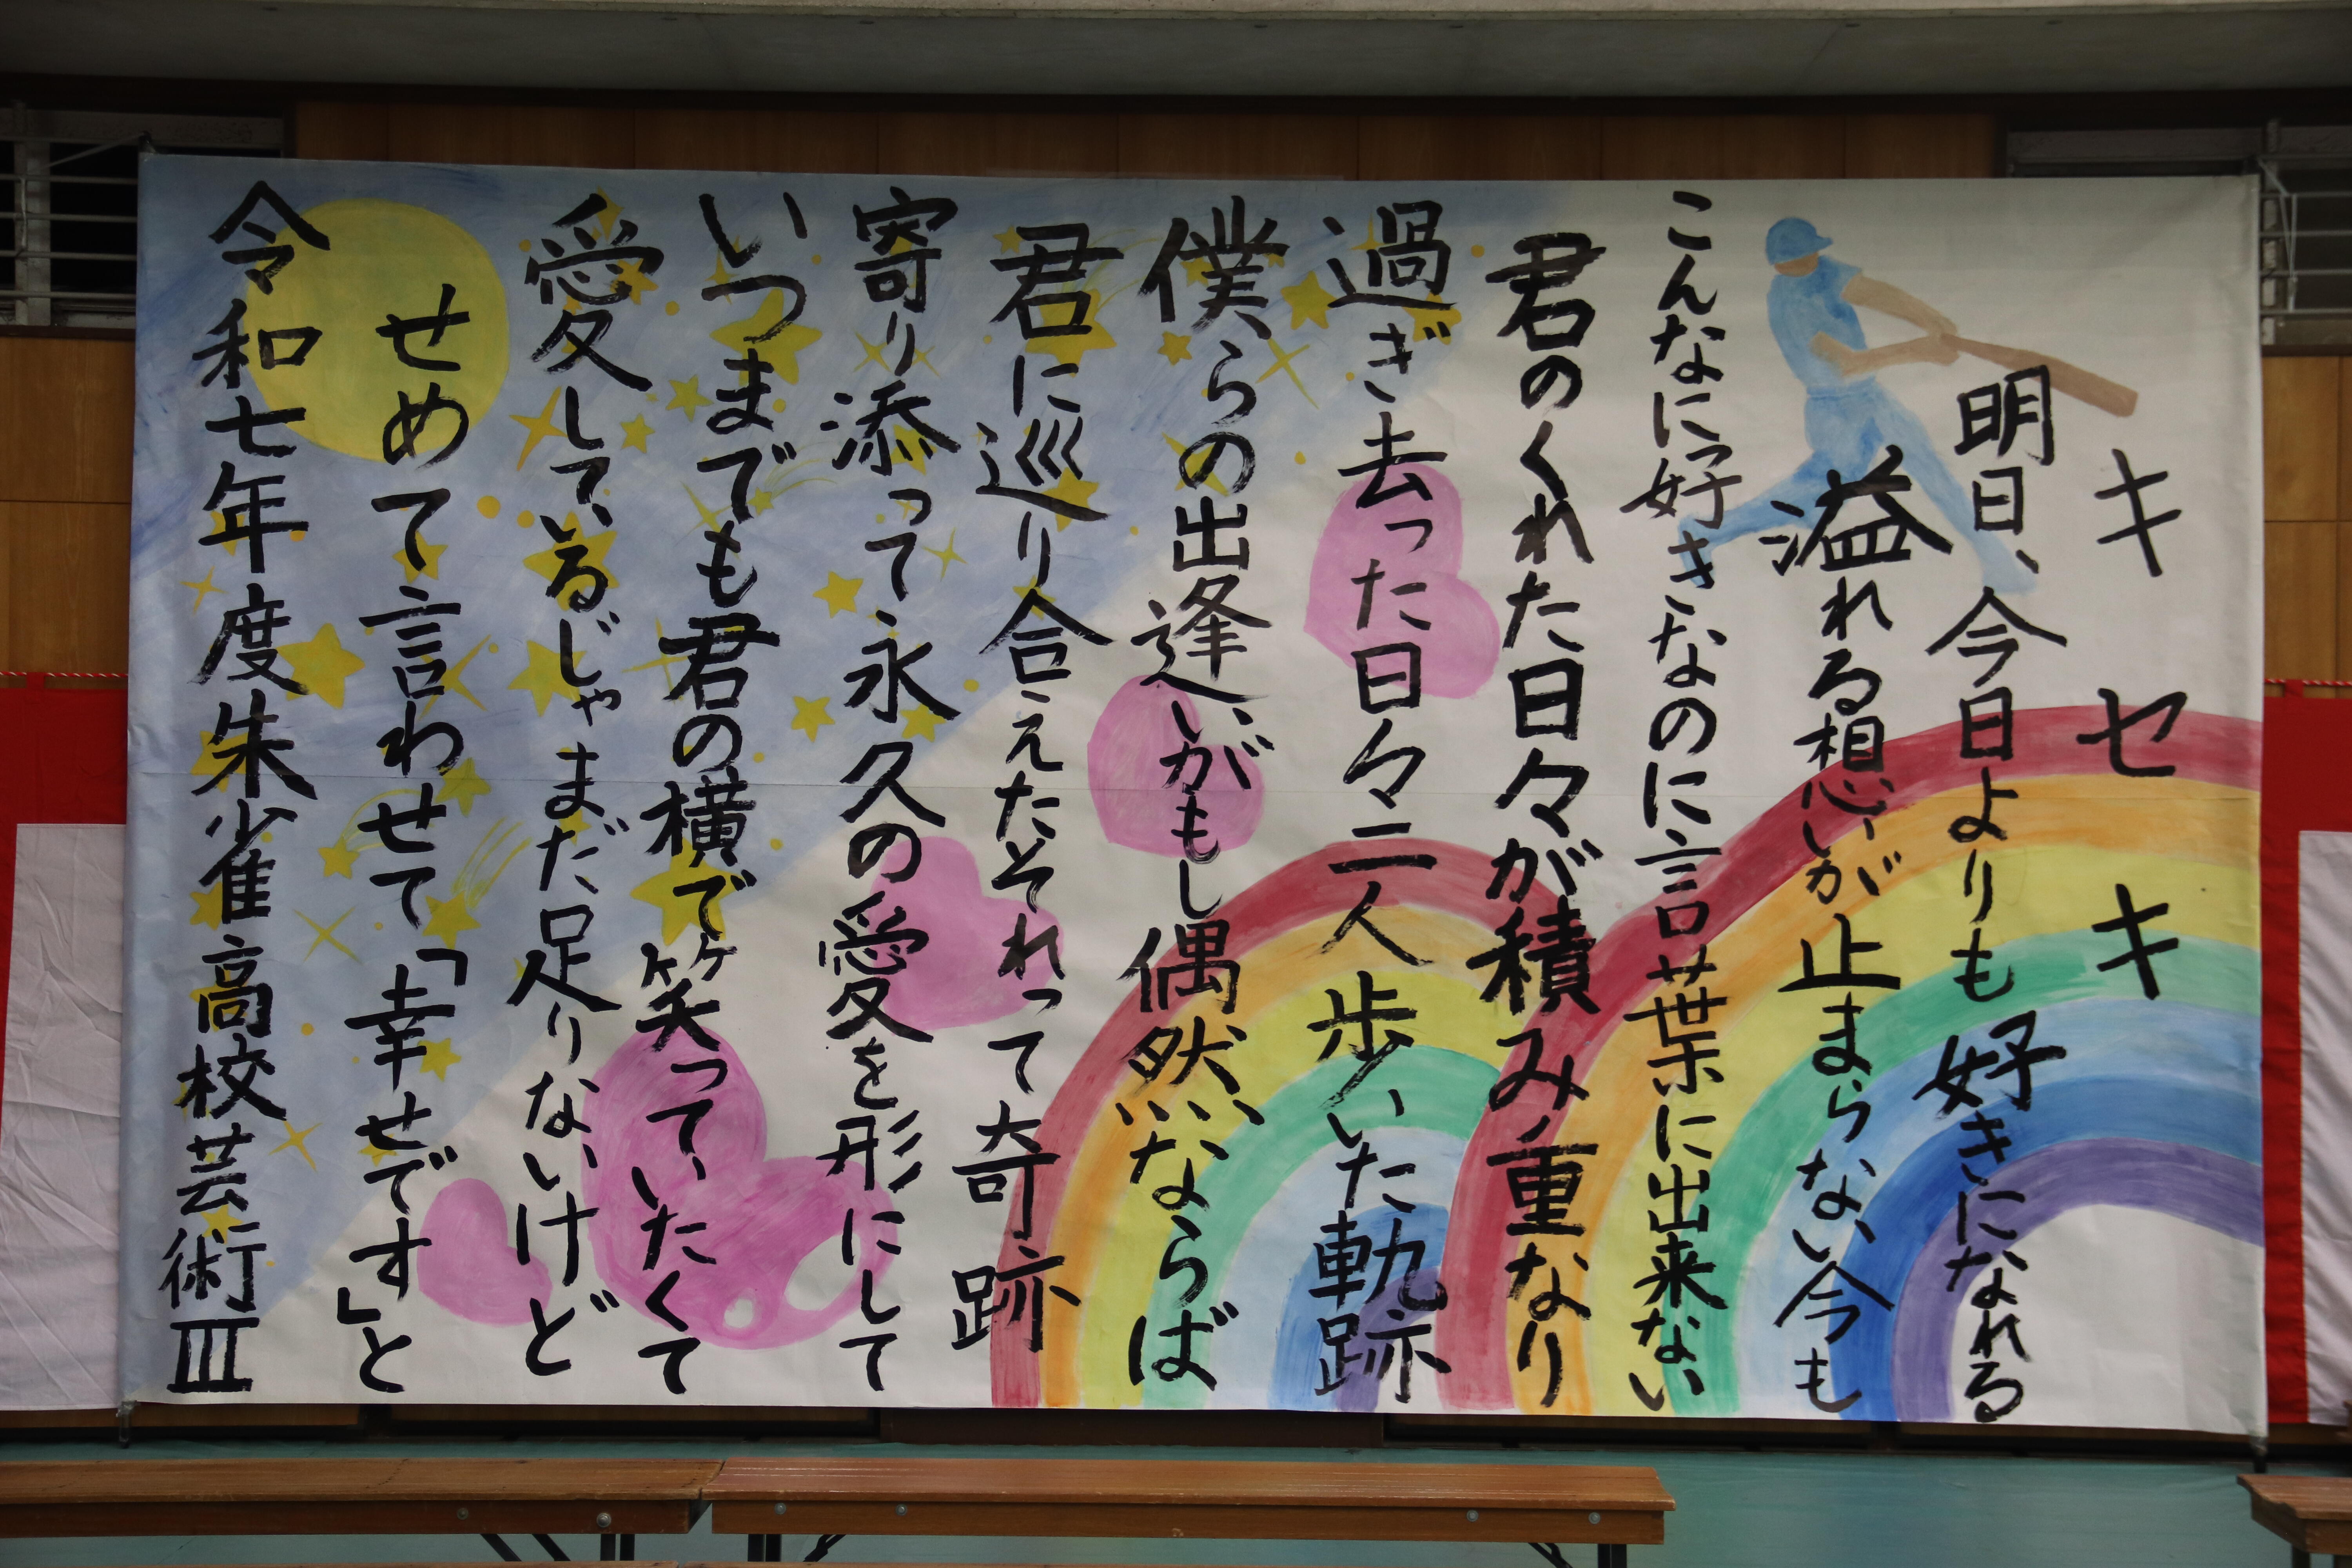 キセキ
明日、今日よりも好きになれる
溢れる想いが止まらない今も
こんなに好きなのに言葉に出来ない
君のくれた日々が積み重なり
過ぎ去った日々二人歩いた軌跡
僕らの出逢いがもし偶然ならば
君に巡り合えたそれって奇跡
寄り添って永久の愛を形にして
いつまでも君の横で笑っていたくて
愛しているじゃまだ足りないけど
せめて言わせて「幸せです」と
令和七年度朱雀高校芸術Ⅲ